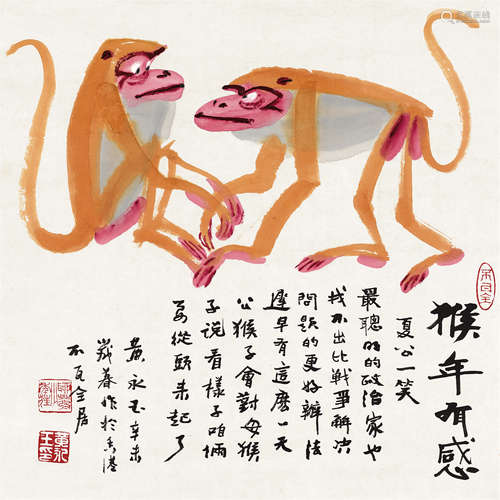 猴年有感
夏公一笑
最聰明的政治家也
找不出比戰爭解决
問題的更好辦法
遲早有這麽一天
公猴子會對母猴
子說看樣子咱倆
要從頭来起了
黄永玉辛未
歲暮作於香港
居